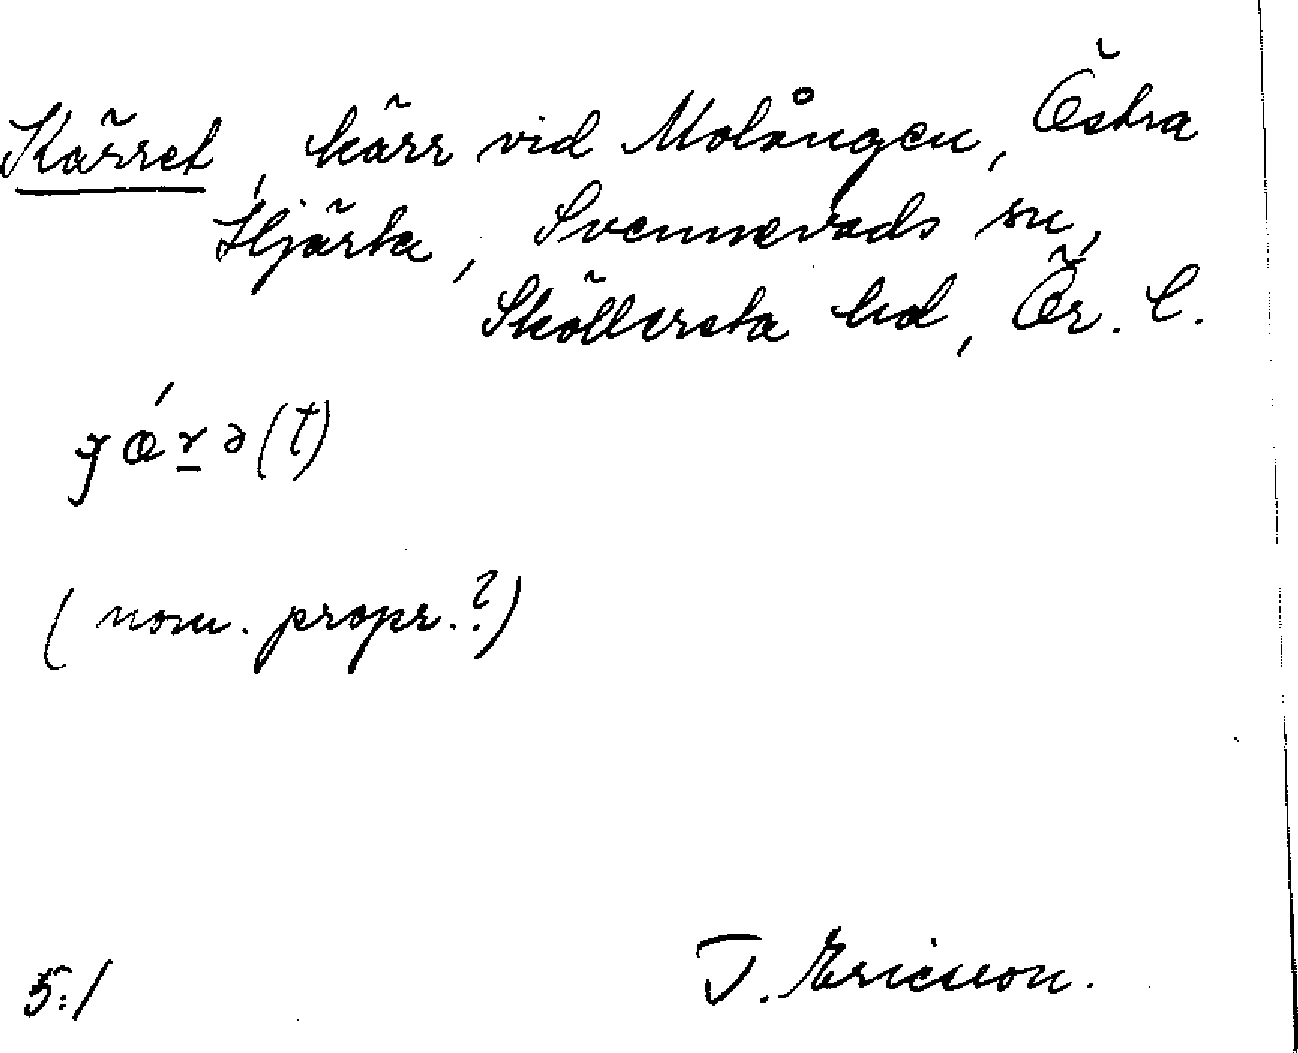 Kärret, kärr vid Molången, Östra
Hjärta, Svennevads sn,
Sköllersta hd, Ör. l.
(nom. propr.?)
T. Ericsson.
5:1